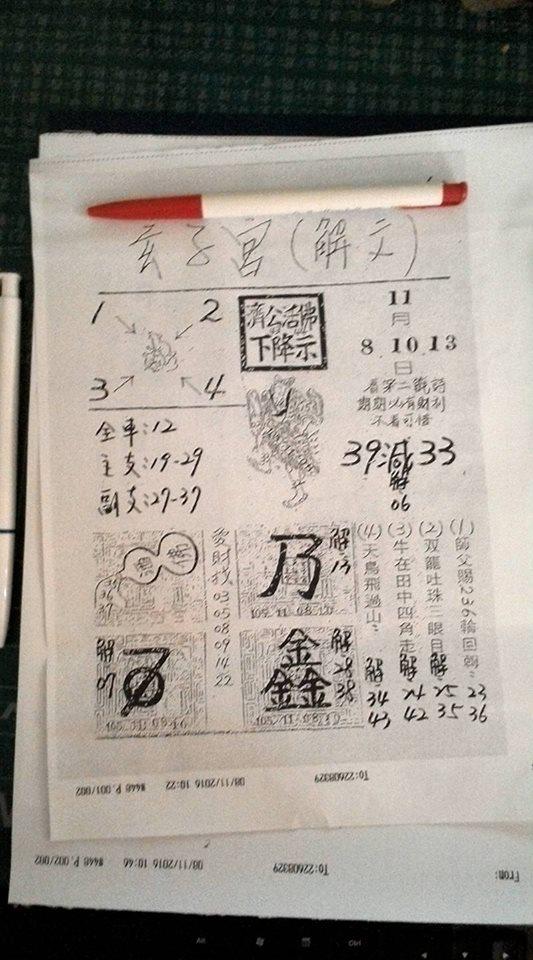 玄子宮(解文)
1 2
3 4
濟公活佛
下降示
11
月
8.10.13
日
看完二觀詩
期期必有財利
不看可惜
39 33
06
全車:12
主支:19-29
副支:27-37
(1)師父賜236輪回
23
36
(2)双龍吐珠三眼目
解
25
35
(3)牛在田中四角走
解
24
42
(4)天鳥飛過山
解
34
43
乃
解
13
105.11.08.10
金
金金
解
28
38
105.11.08.10
03
05
08
09
14
22
解
07
105.11.08.10
08/11/2016 10:22 #448 P.001/002
To:22608329
08/11/2016 10:46 #448 P.002/002
To:22608329
From:
Alt
Ctrl